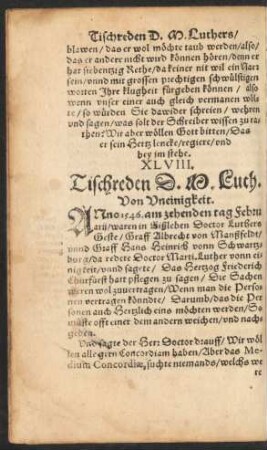 Tischreden D. M. Luthers/
blawen / das er wol möchte taub werden / also/
das er andere nicht wird können hören / denn er
hat siebentzig Rethe / da keiner nit wil ein Narr
sein / unnd mit grossen prechtigen schwülstigen
worten Ihre klugheit fürgeben können / also
wenn unser einer auch gleich vermanen wöl-
te / so würden Sie dawider schreien / wehren
und sagen / was solt der Schreiber wissen zu ra-
then? Wir aber wöllen Gott bitten / Das
er sein Hertz lencke / regiere / und
bey im stehe.
XLVIII.
Tischreden D. M. Luth.
Von Uneinigkeit.
ANno 1546. am zehenden tag Febru-
arij / waren in Eißleben Doctor Luthers
Geste / Graff Albrecht von Manßfeldt /
unnd Graff Hans Heinrich vonn Schwartz-
burg / da redete Doctor Marti. Luther vonn ei-
nigkeit / unnd sagte / Das Hertzog Friederich
Churfürst hart pflegen zu sagen / Die Sachen
weren wol zuvertragen / Wenn man die Perso-
nen vertragen könndte / Darumb / das die Per-
sonen auch Hertzlich eins möchten werden / So
müste offt einer dem andern weichen / und nach-
geben.
Und sagte der Herr Doctor drauff / Wir wöl-
len alle gern Concordiam haben / Aber das Me-
dium Concordiæ, suchte niemands / welchs we-
re